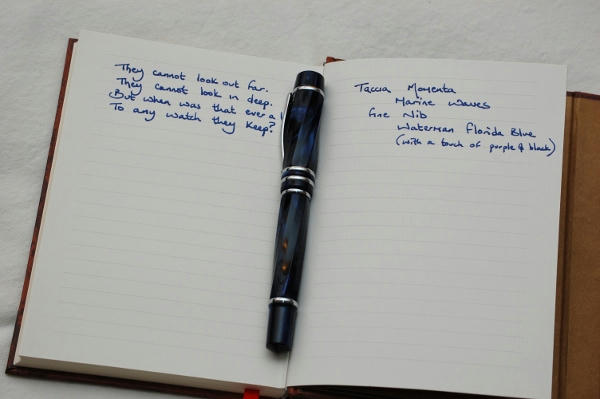 They cannot look out far.
They cannot look in deep.
But when was that ever a
To any watch they keep?
Taccia Momenta
Marine Waves
Fine Nib
Waterman Florida Blue
(with a touch of purple & black)